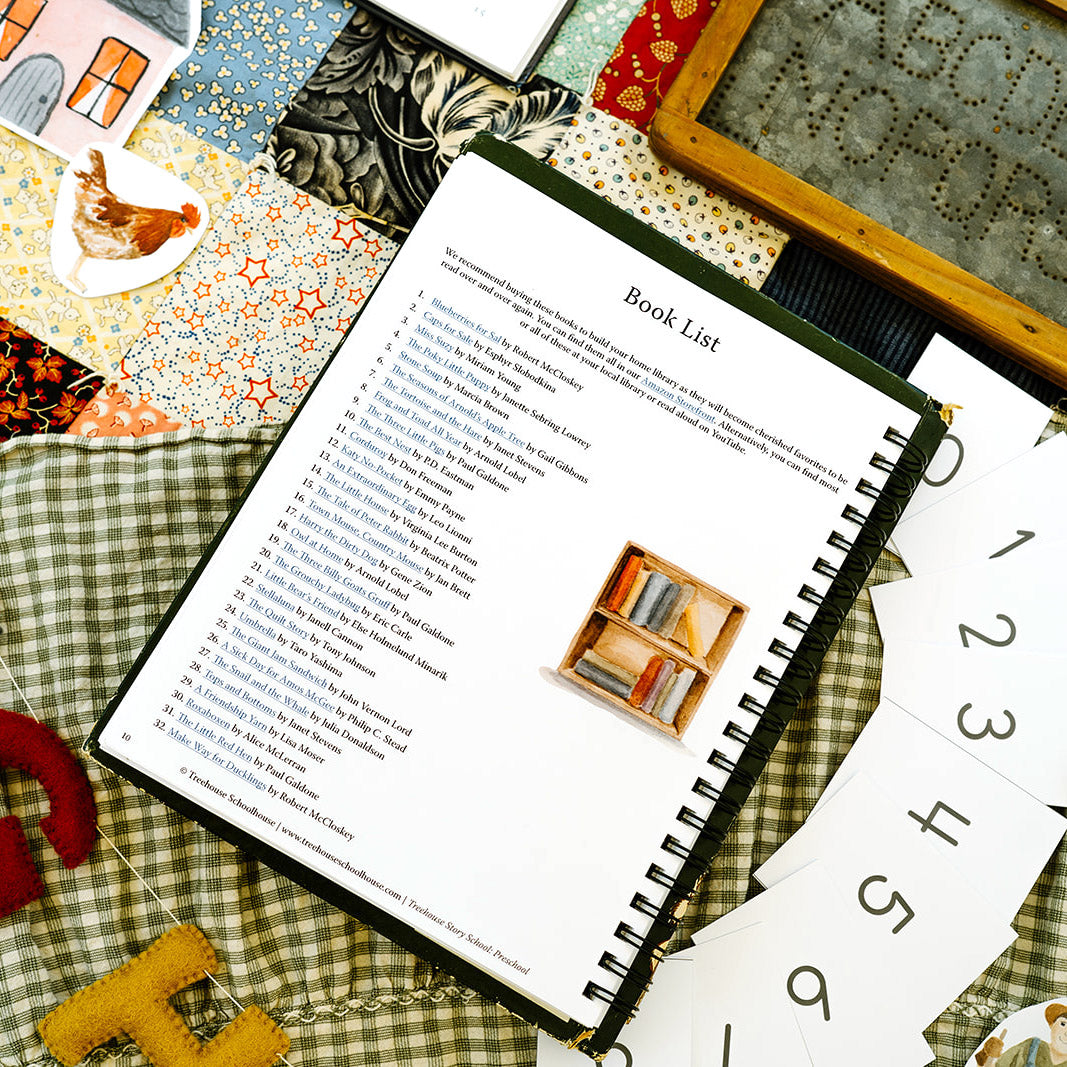 Book List
We recommend buying these books to build your home library as they will become cherished favorites to be
read over and over again. You can find them all in our Amazon Storefront. Alternatively, you can find most
or all of these at your local library or read aloud on YouTube.
1. Blueberries for Sal by Robert McCloskey
2. Caps for Sale by Esphyr Slobodkina
3. Miss Suzy by Miriam Young
4. The Poky Little Puppy by Janette Sebring Lowrey
5. Stone Soup by Marcia Brown
6. The Seasons of Arnold's Apple Tree by Gail Gibbons
7. The Tortoise and the Hare by Janet Stevens
8. Frog and Toad All Year by Arnold Lobel
9. The Three Little Pigs by Paul Galdone
10. The Best Nest by P.D. Eastman
11. Corduroy by Don Freeman
12. Katy No-Pocket by Emmy Payne
13. An Extraordinary Egg by Leo Lionni
14. The Little House by Virginia Lee Burton
15. The Tale of Peter Rabbit by Beatrix Potter
16. Town Mouse, Country Mouse by Jan Brett
17. Harry the Dirty Dog by Gene Zion
18. Owl at Home by Arnold Lobel
19. The Three Billy Goats Gruff by Paul Galdone
20. The Grouchy Ladybug by Eric Carle
21. Little Bear's Friend by Else Holmelund Minarik
22. Stellaluna by Janell Cannon
23. The Quilt Story by Tony Johnson
24. Umbrella by Taro Yashima
25. The Giant Jam Sandwich by John Vernon Lord
26. A Sick Day for Amos McGee by Philip C. Stead
27. The Snail and the Whale by Julia Donaldson
28. Tops and Bottoms by Janet Stevens
29. A Friendship Yarn by Lisa Moser
30. Roxaboxen by Alice McLerran
31. The Little Red Hen by Paul Galdone
32. Make Way for Ducklings by Robert McCloskey
10
© Treehouse Schoolhouse | www.treehouseschoolhouse.com | Treehouse Story School: Preschool
ABCD
NOPQR
0
1
2
3
4
5
6